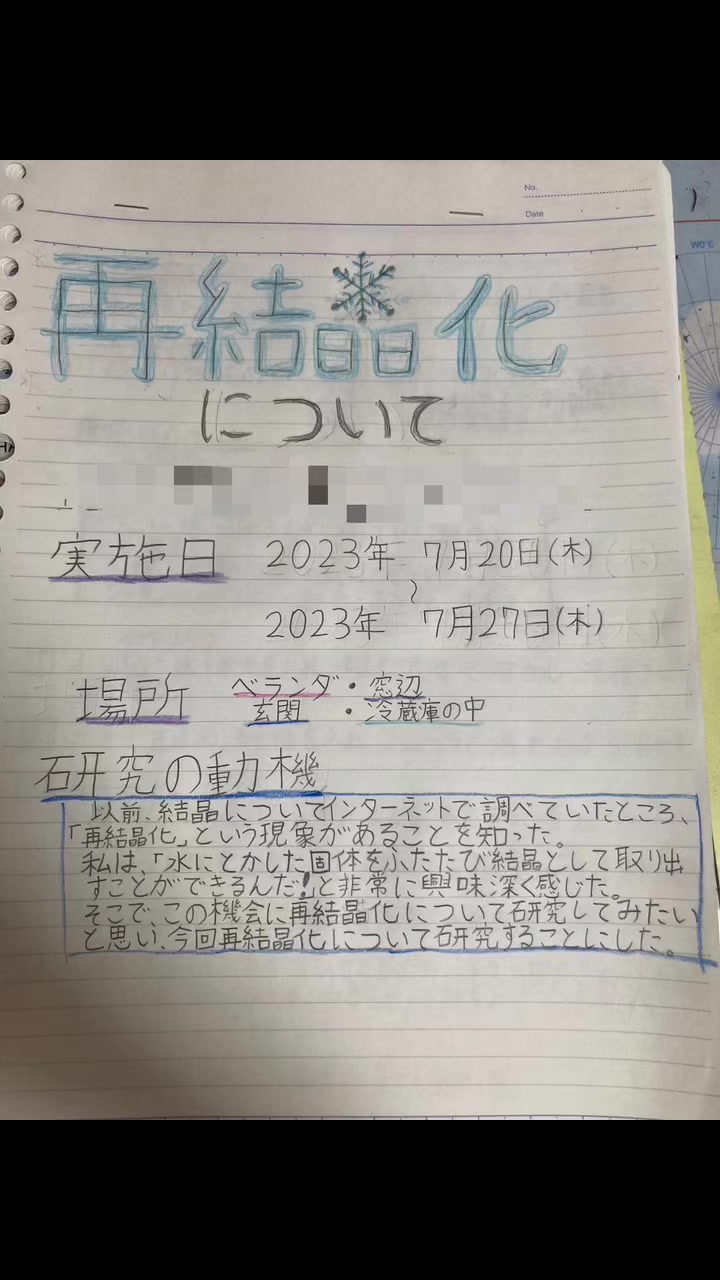 No.
Date
W0'E
再結晶化
について
実施日 2023年 7月20日(木)
~
2023年 7月27日(木)
場所 ベランダ・窓辺
玄関・冷蔵庫の中
研究の動機
以前、結晶についてインターネットで調べていたところ、
「再結晶化」という現象があることを知った。
私は、「水にとかした固体をふたたび結晶として取り出
すことができるんだ!と非常に興味深く感じた。
そこで、この機会に再結晶化について研究してみたい
と思い、今回再結晶化について研究することにした。